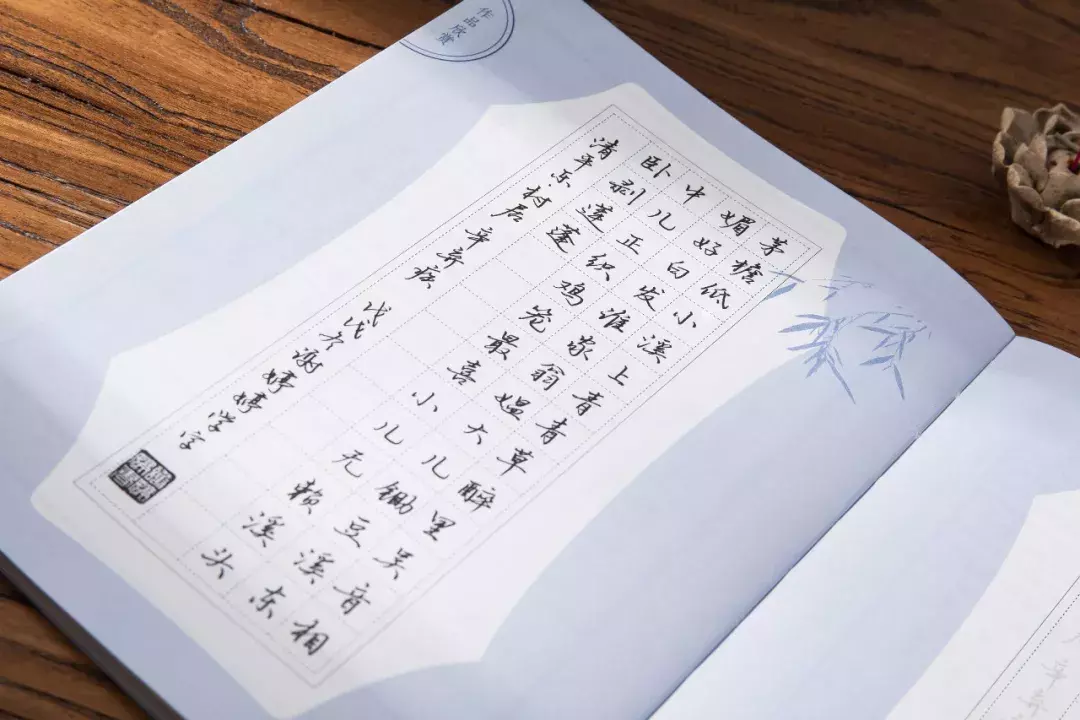 作品欣赏
茅檐低小溪上青青草醉里吴音相
媚好白发谁家翁媪大儿锄豆溪东
中儿正织鸡笼最喜小儿无赖溪头
卧剥莲蓬
清平乐·村居 辛弃疾 戊戌冬谢婷婷学字